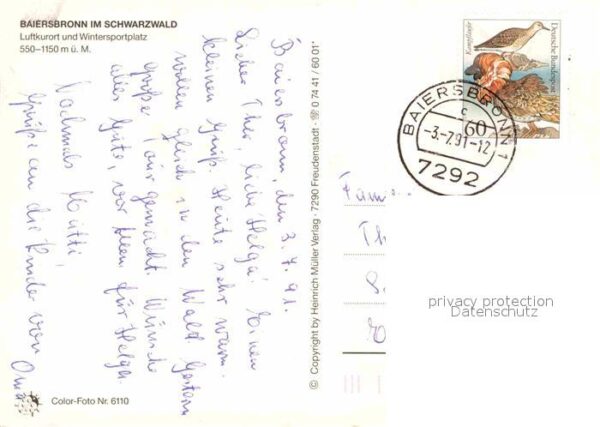 BAIERSBRONN IM SCHWARZWALD
Luftkurort und Wintersportplatz
550–1150 m ü. M.
Baiersbronn, den 3.7.91.
Lieber Theo, liebe Helga! Einen
kleinen Gruß. Heute sehr warm.
wollen gleich in den Wald. Gestern
große Tour gemacht. Wünsche
alles Gute, vor allem für Helga.
Nochmals Mutti
Grüße an die Kinder von Oma
Color-Foto Nr. 6110
© Copyright by Heinrich Müller Verlag · 7290 Freudenstadt · ☏ 0 74 41 / 60 01
Kampfläufer
Deutsche Bundespost
60
BAIERSBRONN 1
c
-3.-7.91-12
7292
Fami
Th
privacy protection
Datenschutz